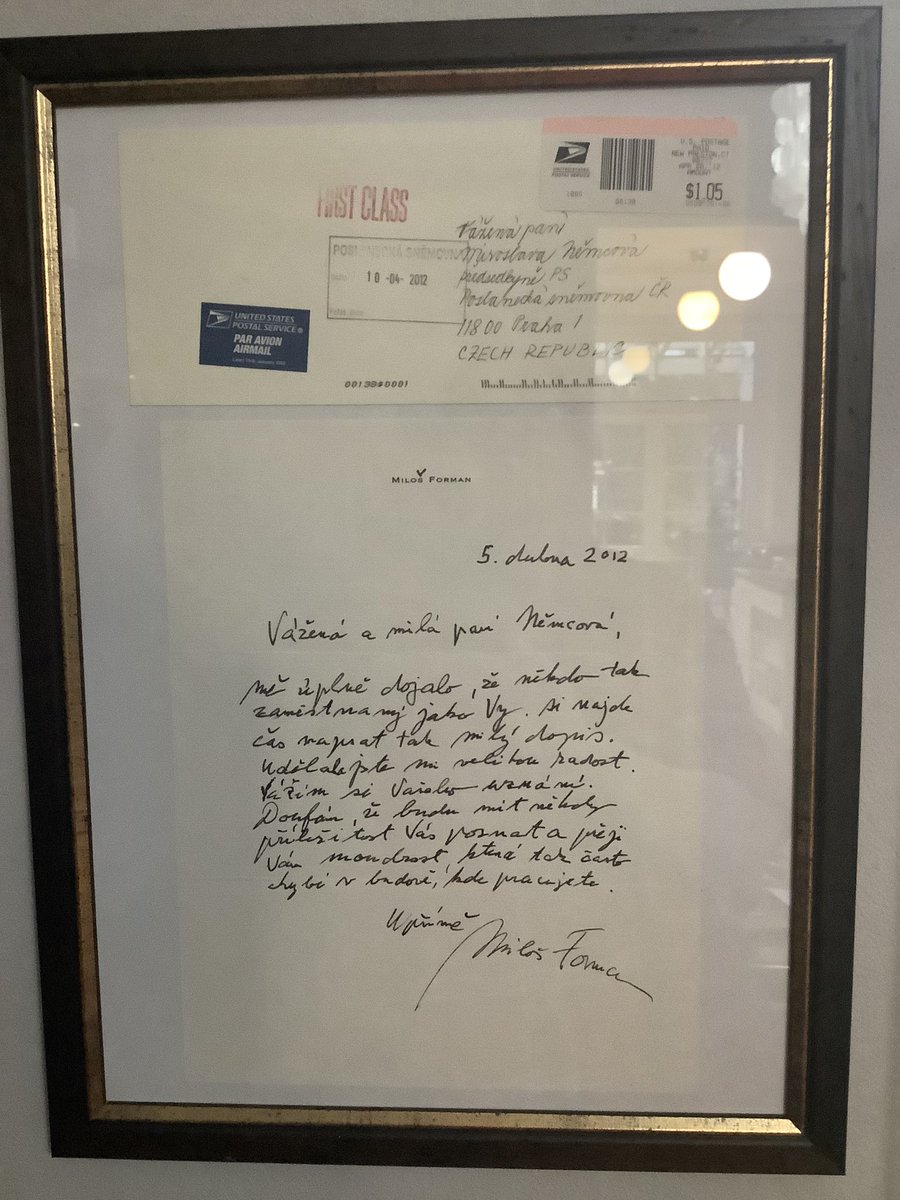 UNITED STATES
POSTAL SERVICE
U.S. POSTAGE
PAID
NEW PRESTON, CT
AMOUNT
$1.05
FIRST CLASS
Vážená paní
Miroslava Němcová
předsedkyně PS
Poslanecká sněmovna ČR
118 00 Praha 1
CZECH REPUBLIC
POSLANECKÁ SNĚMOVNA
10 -04- 2012
UNITED STATES
POSTAL SERVICE®
PAR AVION
AIRMAIL
MILOŠ FORMAN
5. dubna 2012
Vážená a milá paní Němcová,
mě úplně dojalo, že někdo tak
zaměstnaný jako Vy. si najde
čas napsat tak milý dopis.
Udělala jste mi velikou radost.
Vážím si Vašeho uznání.
Doufám, že budu mít někdy
příležitost Vás poznat a přeji
Vám moudrost, která tak často
chybí v budově, kde pracujete.
Upřímně
Miloš Forman